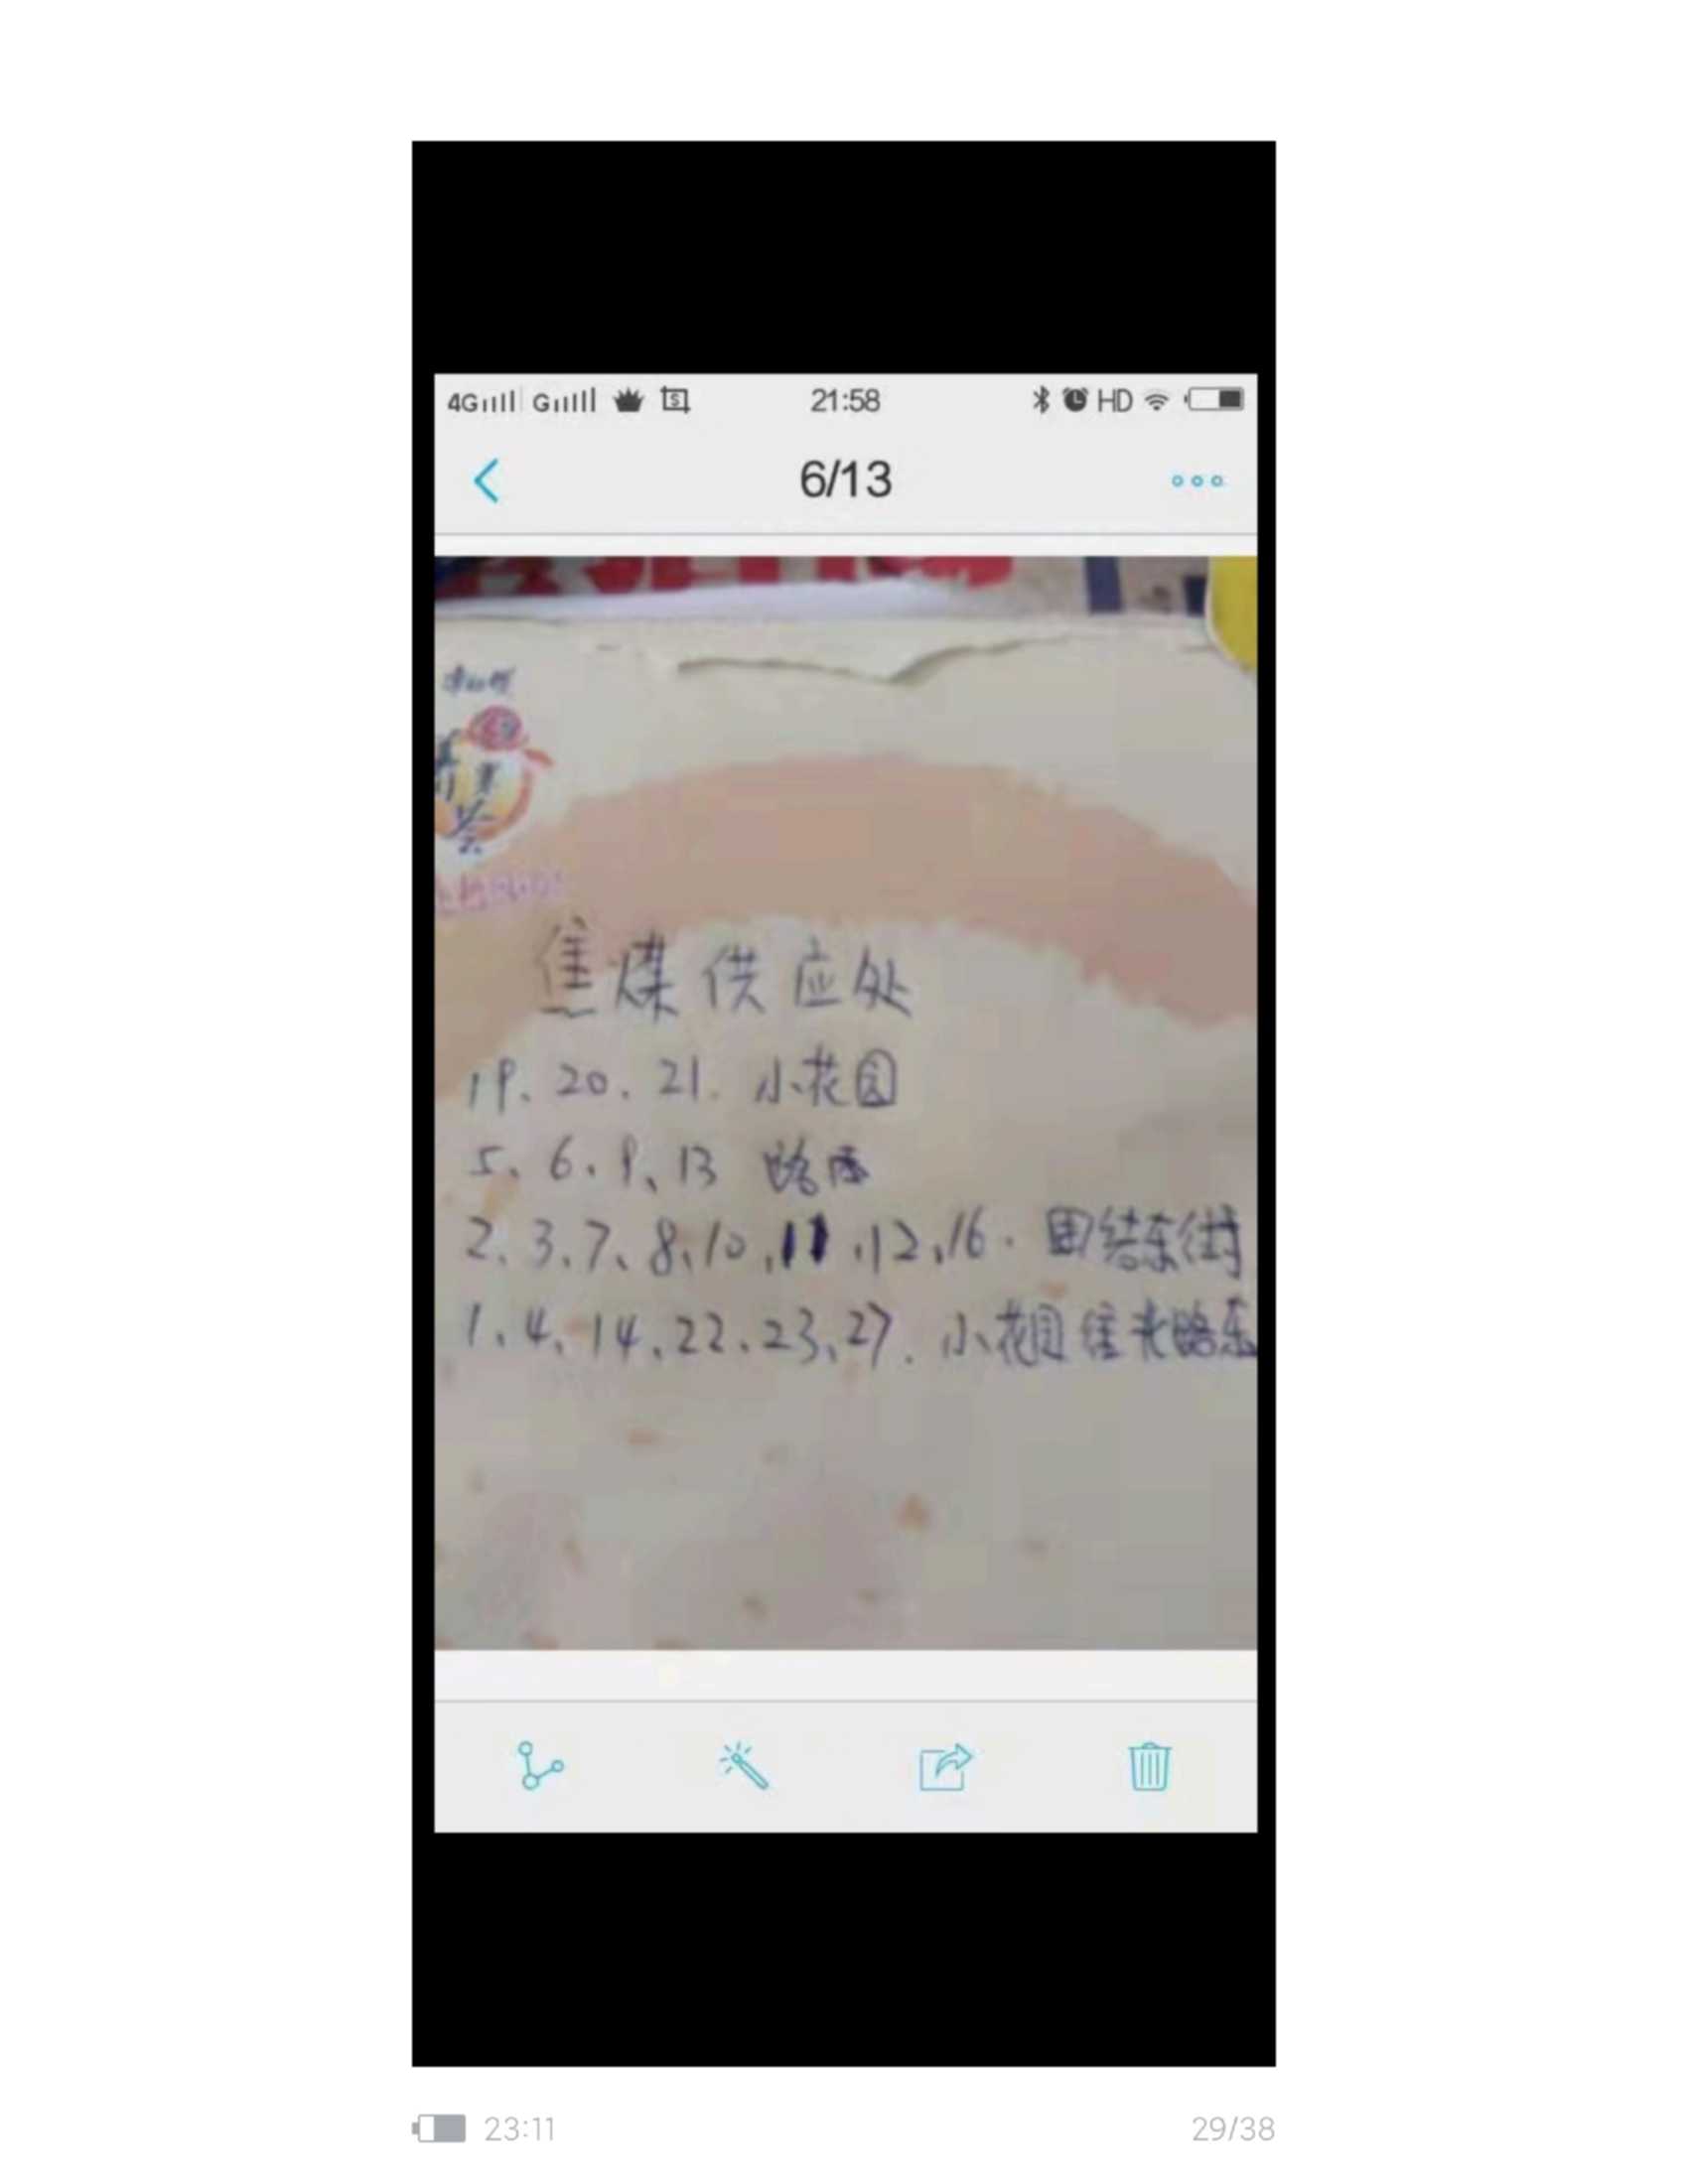 4G G 21:58 HD
6/13
焦煤供应处
19、20、21. 小花园
5、6、9、13 路西
2、3、7、8、10、11、12、16. 团结东街
1、4、14、22、23、27. 小花园焦光路东
23:11 29/38